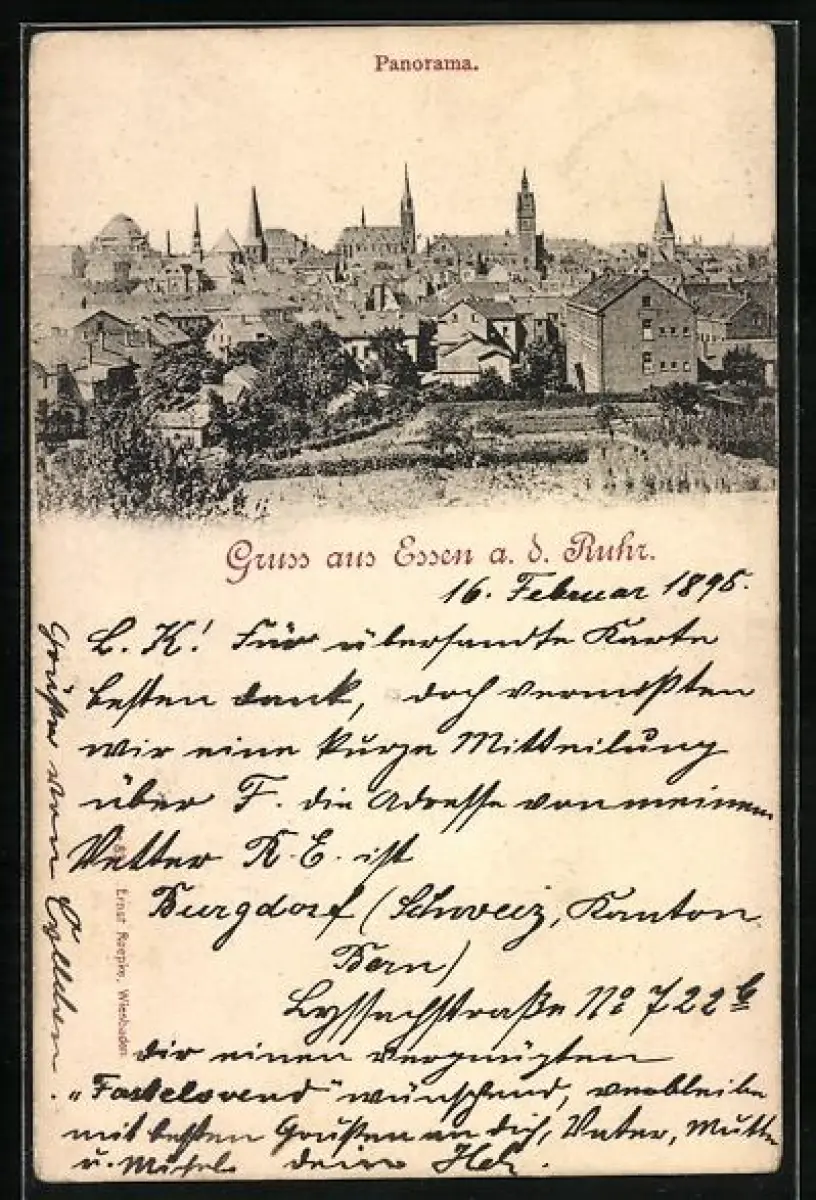 Panorama.
Gruss aus Essen a. d. Ruhr.
16. Februar 1895.
L. K! Für übersandte Karte
besten Dank, doch vermißten
wir eine kurze Mitteilung
über F. die Adresse von meinem
Vetter R. E. ist
Burgdorf (Schweiz, Kanton
Bern)
Lyssachstraße No 722b
dir einen vergnügten
„Fastelovend" wünschend, verbleibe
mit besten Grüßen an dich, Vater, Mutter
u. dein
Grüße von
Ernst Roepke, Wiesbaden